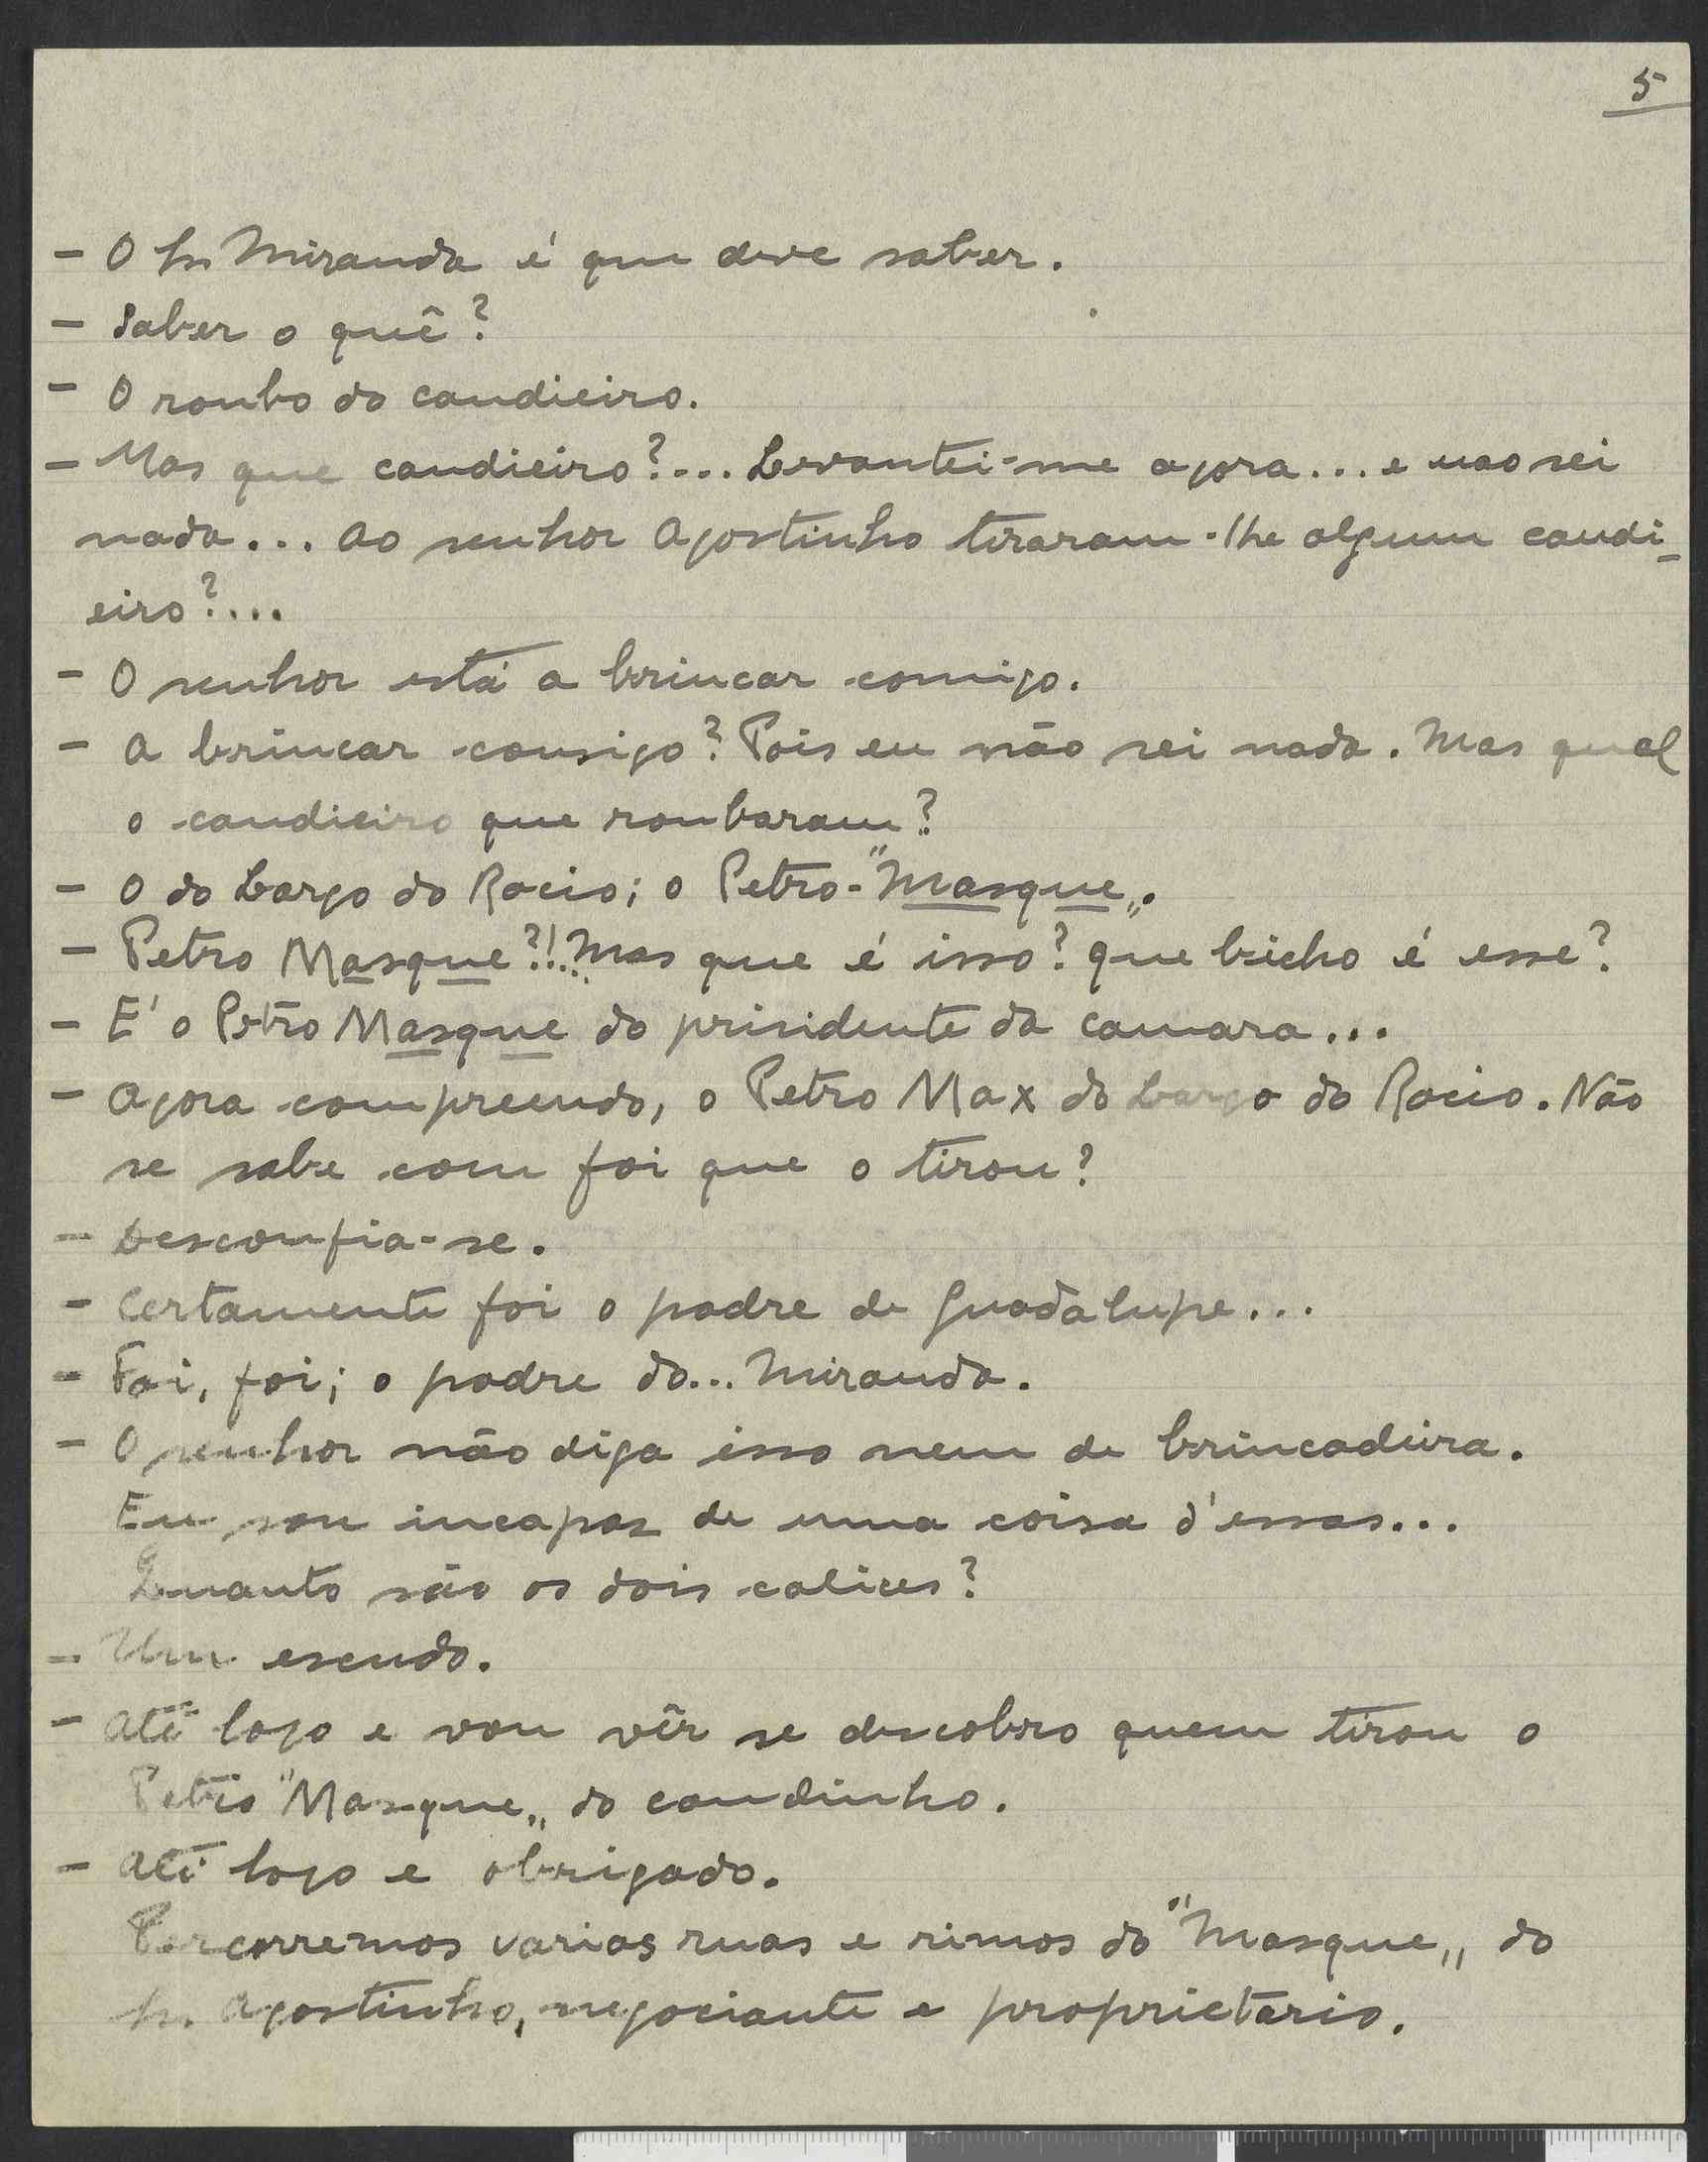 5
- O Sr Miranda é que deve saber.
- Saber o quê?
- O roubo do candieiro.
- Mas que candieiro?... Levantei-me agora... e nao sei
nada... Ao senhor Agostinho tiraram-lhe algum candi-
eiro?...
- O senhor está a brincar comigo.
- A brincar consigo? Pois eu não sei nada. Mas qual
o candieiro que roubaram?
- O do Largo do Rocio; o Petro-"Masque„.
- Petro Masque?!... Mas que é isso? Que bicho é esse?
- E' o Petro Masque do prisidente da camara...
- Agora compreendo, o Petro Max do Largo do Rocio. Não
se sabe com foi que o tirou?
- Desconfia-se.
- Certamente foi o padre de Guadalupe...
- Foi, foi; o padre do... Miranda.
- O senhor não diga isso nem de brincadeira.
Eu sou incapaz de uma coisa d'essas...
Quanto são os dois calices?
- Um escudo.
- Até logo e vou vêr se descobro quem tirou o
Petro "Masque„ do candinho.
- Até logo e obrigado.
Percorremos varias ruas e rimos do "Masque„ do
Sr. Agostinho, negociante e proprietário.